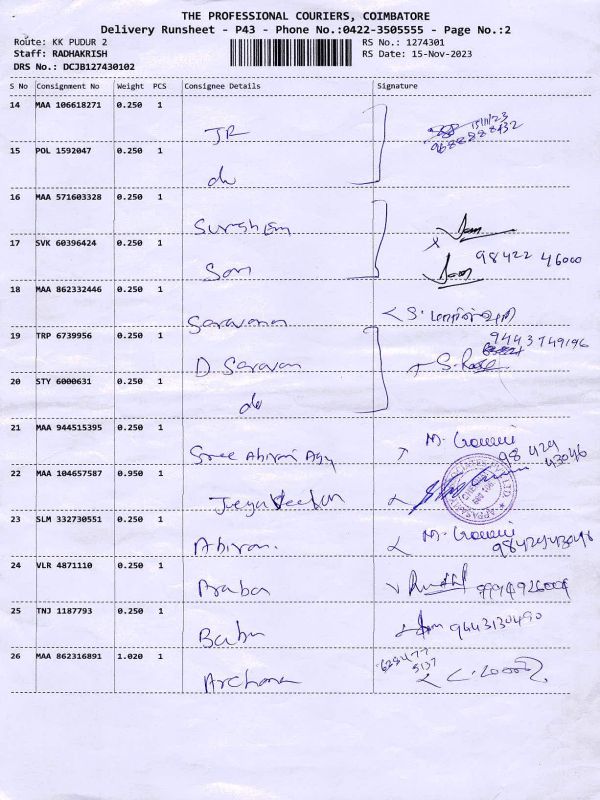 THE PROFESSIONAL COURIERS, COIMBATORE
Delivery Runsheet - P43 - Phone No.:0422-3505555 - Page No.:2
Route: KK PUDUR 2 RS No.: 1274301
Staff: RADHAKRISH RS Date: 15-Nov-2023
DRS No.: DCJB127430102
S No Consignment No Weight PCS Consignee Details Signature
14 MAA 106618271 0.250 1
JR 15/11/23
9688888432
15 POL 1592047 0.250 1
do
16 MAA 571603328 0.250 1
17 SVK 60396424 0.250 1
98422 46000
18 MAA 862332446 0.250 1
Saravana
19 TRP 6739956 0.250 1 9443749196
D. Saravan
20 STY 6000631 0.250 1
do
21 MAA 944515395 0.250 1
Sree Abirami Agy 98429
43046
22 MAA 104657587 0.950 1
23 SLM 332730551 0.250 1
Abiram. 9842943046
24 VLR 4871110 0.250 1
25 TNJ 1187793 0.250 1
Babu 9443130490
26 MAA 862316891 1.020 1
Archana 628477
5137